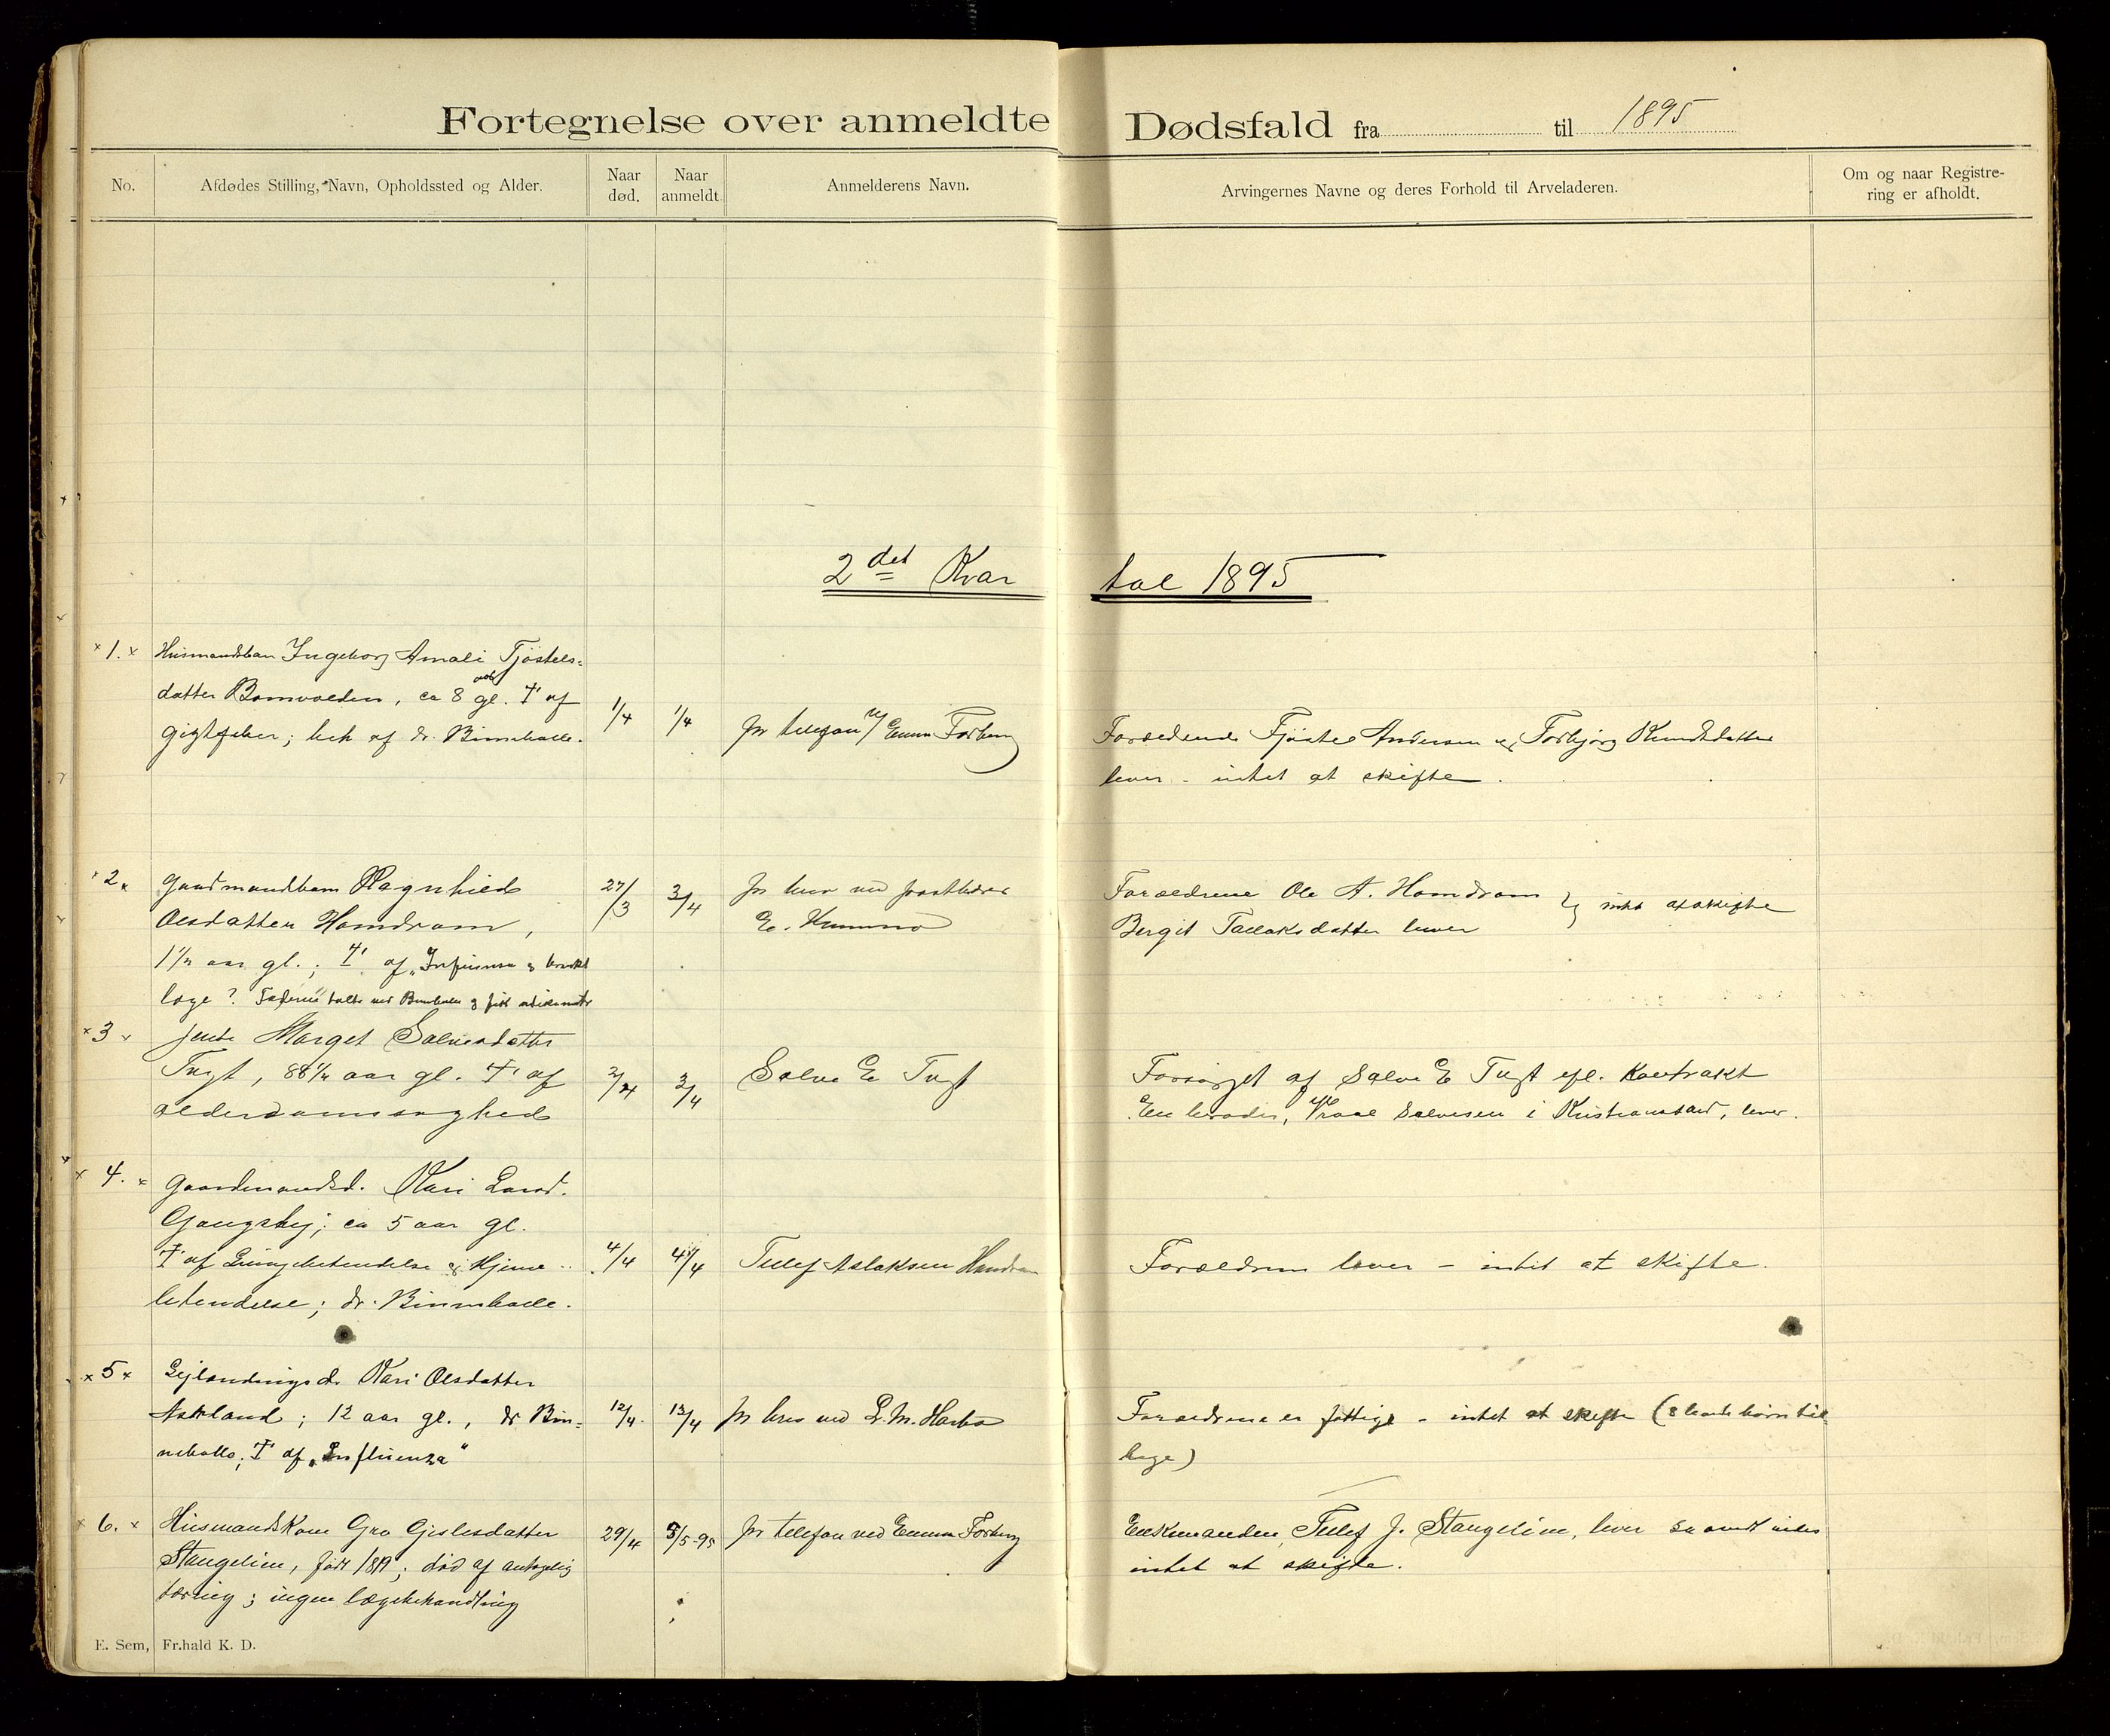 Fortegnelse over anmeldte Dødsfald fra til 1895
No.
Afdødes Stilling, Navn, Opholdssted og Alder.
Naar død.
Naar anmeldt
Anmelderens Navn.
Arvingernes Navne og deres Forhold til Arveladeren.
Om og naar Registre-
ring er afholdt.
2det Kvar tal 1895
1. Husmandsbarn Ingeborg Amali Tjøstels=
datter Bomvolden, ca 8 aar gl. † af
gigtfeber; beh af dr. Binneballe.
1/4 1/4 pr telefon v/ Emma Forberg
Forældrene Tjøstel Andersen og Torbjørg Knudsdatter
lever - intet at skifte.
2. Gaardmandsbarn Ragnhild
Olsdatter Homdrom,
1 1/2 aar gl.; † af „Influensa
læge?
27/3 3/4 pr brev ved
Forældrene Ole A. Homdrom
Bergit Tallaksdatter lever
intet at skifte
3 Jente Marget Salvesdatter
Tugt, 88 1/2 aar gl. † af
alderdomssvaghed
2/4 3/4 Salve E Tugt
Forsørget af Salve E Tugt efl. Kontrakt
En broder, Salvesen i Kristianssand, lever.
4. Gaardmandsd. Kari Larsd.
Gangshej; ca 5 aar gl.
† af Lungebetendelse og Hjerne
betendelse; dr. Binneballe.
4/4 4/4 Tellef Aslaksen Homdrom
Forældrene lever - intet at skifte.
5 Lejlændingsd. Kari Olsdatter
Askland; 12 aar gl., dr Bin=
neballe; † af „Influenza"
12/4 13/4 pr brev ved
Forældrene er fattige - intet at skifte (8 levende børn til
bage)
6. Husmandskone Gro Gjeslesdatter
Stangelien, født 1819; død af antagelig
tæring; ingen lægebehandling
29/4 5/5-95 pr telefon ved Emma Forberg
Enkemanden, Tellef J. Stangelien, lever
intet at skifte.
E. Sem, Fr.hald K. D.